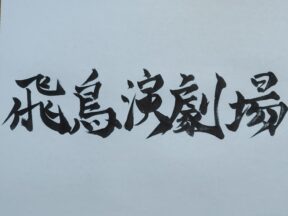 飛鳥演劇場